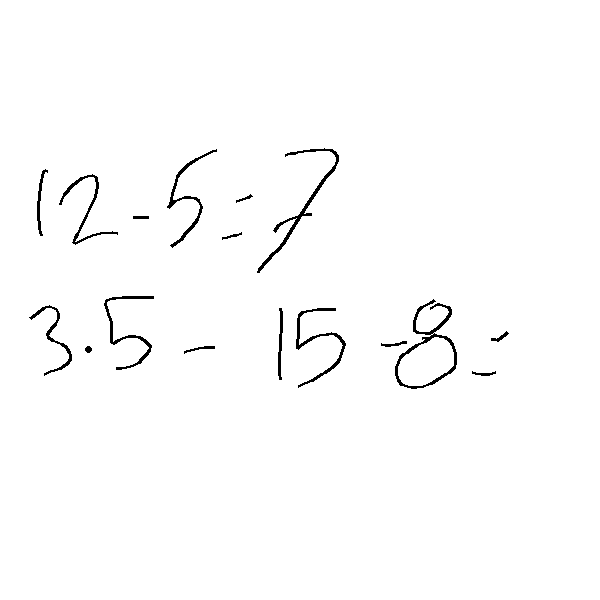 12-5=7
3.5- 15-8=